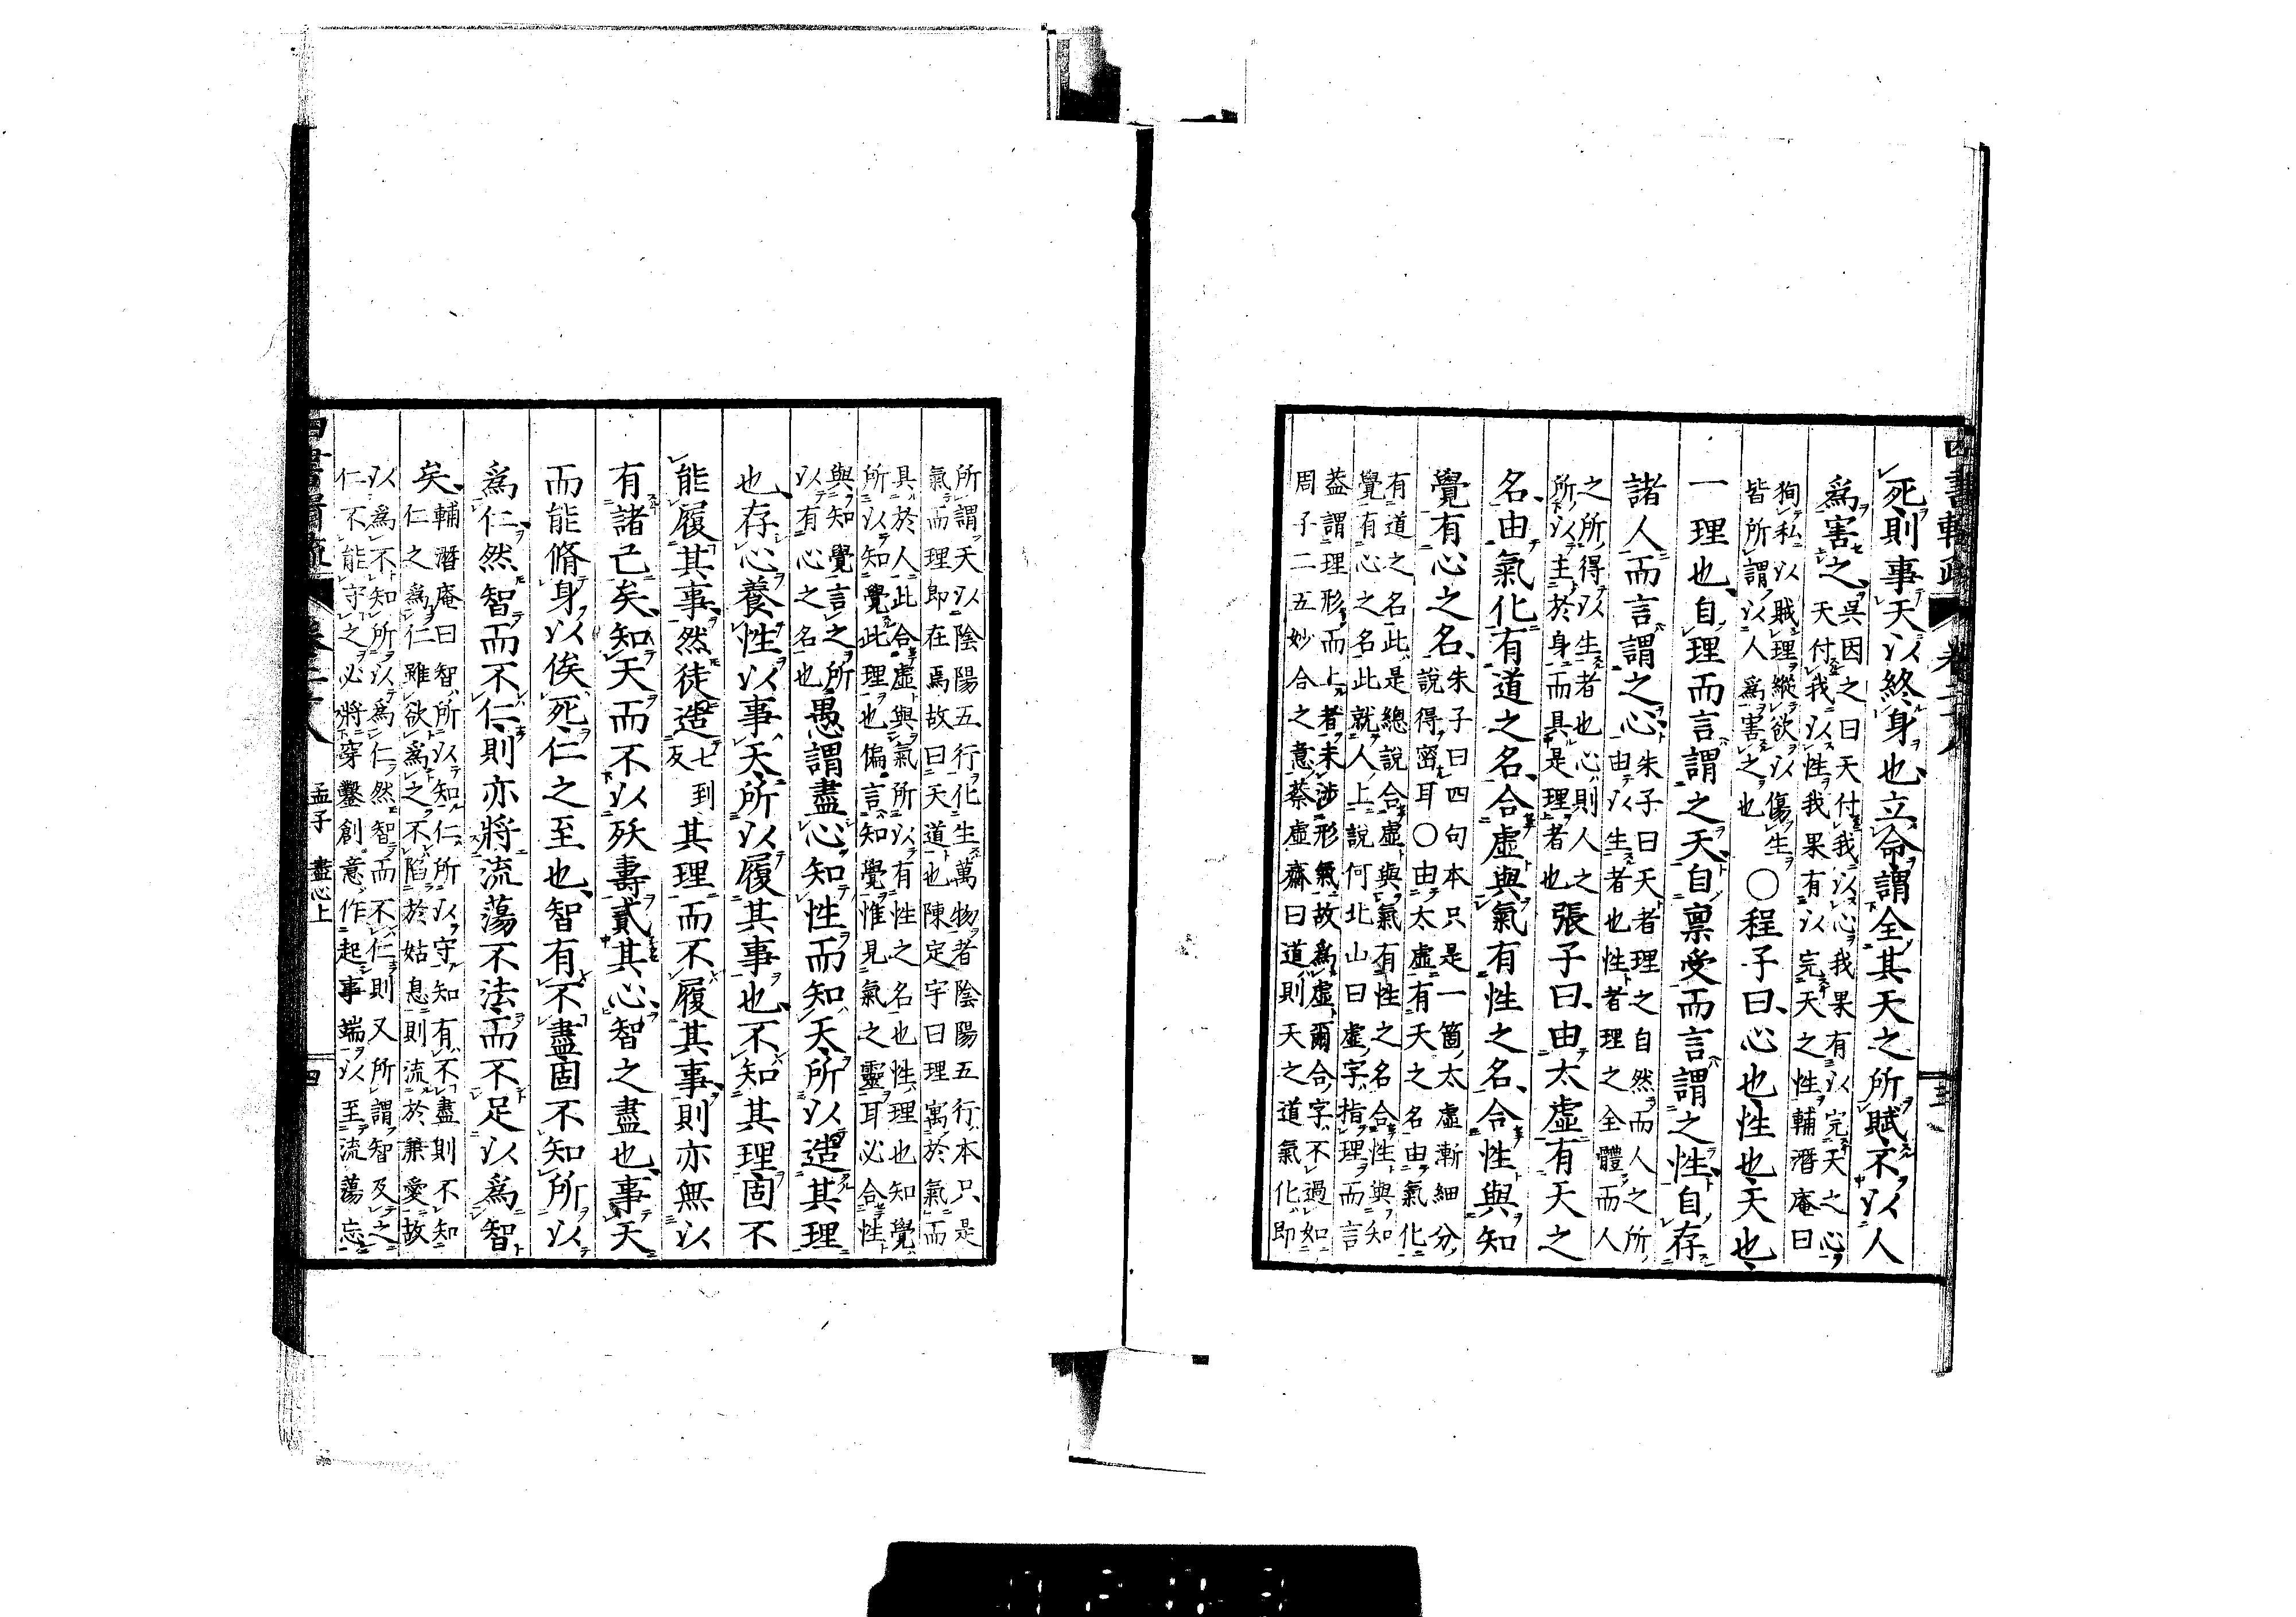 死則事天以終身也立命謂全其天之所賦不以人
爲害之
吳因之曰天付我以心我果有以完天之心
天付我以性我果有以完天之性輔潛庵曰
狥私以賊理縱欲以傷生
皆所謂以人爲害之也
○程子曰心也性也天也
一理也自理而言謂之天自稟受而言謂之性自存
諸人而言謂之心
朱子曰天者理之自然而人之所
由以生者也性者理之全體而人
之所得以生者也心則人之
所以主於身而具是理者也
張子曰由太虛有天之
名由氣化有道之名合虛與氣有性之名合性與知
覺有心之名
朱子曰四句本只是一箇太虛漸細分
說得密耳○由太虛有天之名由氣化
有道之名此是總說合虛與氣有性之名合性與知
覺有心之名此就人上說何北山曰虛字指理而言
葢謂理形而上者未涉形氣故爲虛爾合字不過如
周子二五妙合之意蔡虛齋曰道則天之道氣化即
所謂天以陰陽五行化生萬物者陰陽五行本只是
氣而理即在焉故曰天道也陳定宇曰理寓於氣而
具於人此合虛與氣所以有性之名也性理也知覺
所以知覺此理也偏言知覺惟見氣之靈耳必合性
與知覺言之所
以有心之名也
愚謂盡心知性而知天所以造其理
也存心養性以事天所以履其事也不知其理固不
能履其事然徒造
七到
反
其理而不履其事則亦無以
有諸己矣知天而不以殀壽貳其心智之盡也事天
而能脩身以俟死仁之至也智有不盡固不知所以
爲仁然智而不仁則亦將流蕩不法而不足以爲智
矣
輔潛庵曰智所以知仁所以守知有不盡則不知
仁之爲仁雖欲爲之不陷於姑息則流於兼愛故
以爲不知所以爲仁然智而不仁則又所謂智及之
仁不能守之必將穿鑿創意作起事端以至流蕩忘
孟子 盡心上
四